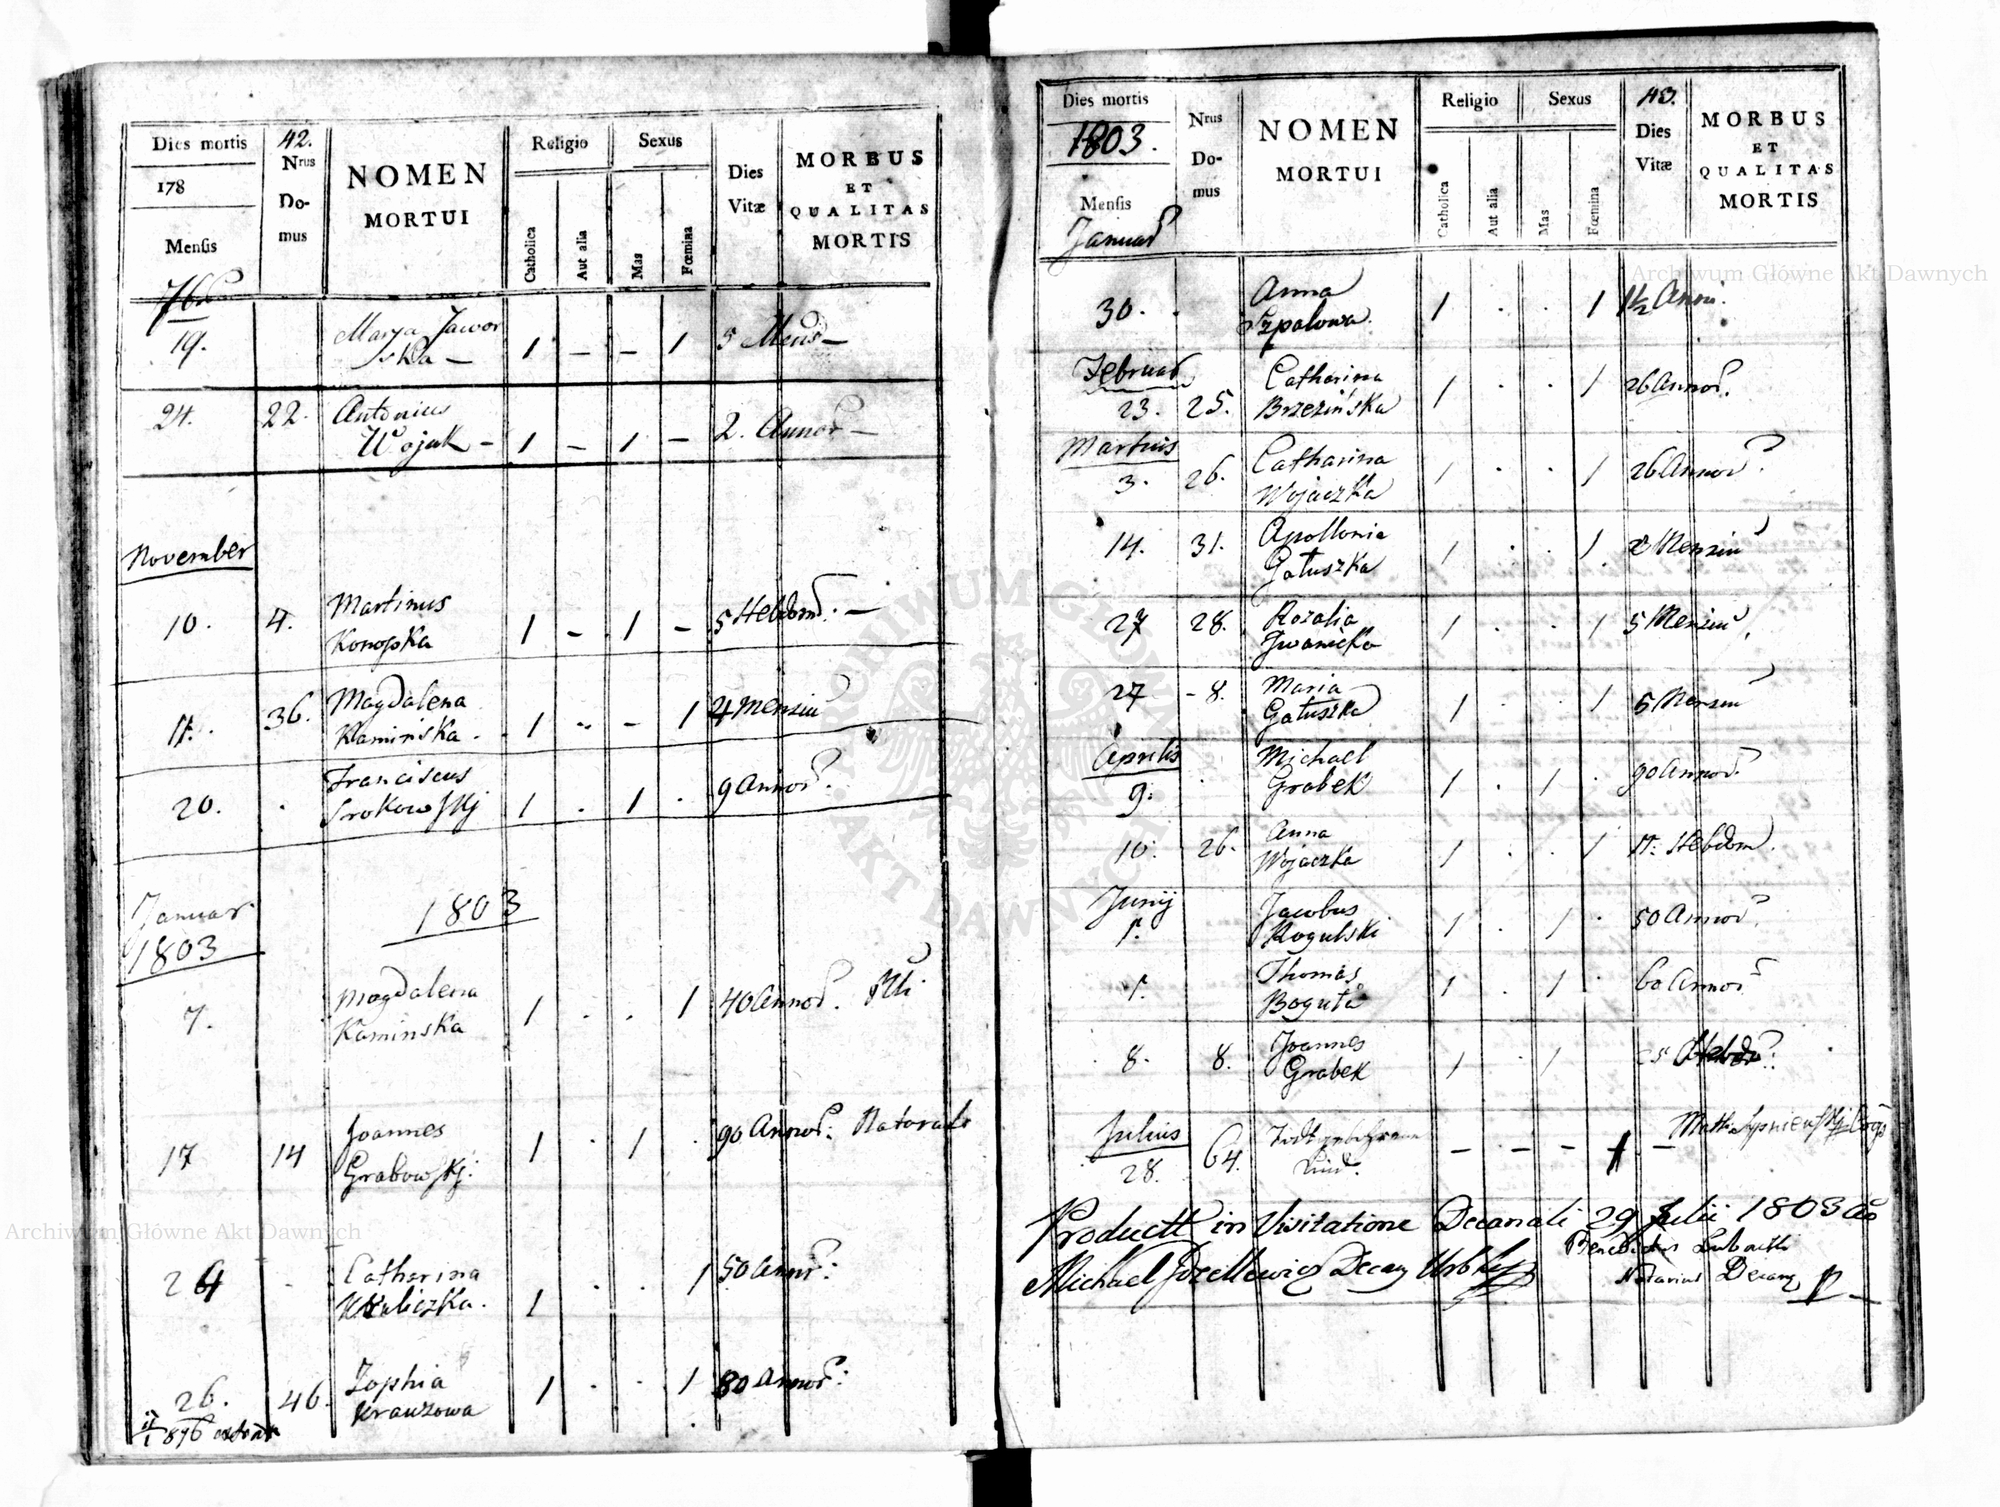 Dies mortis
178
Mensis
7br
42.
Nrus
Do-
mus
NOMEN
MORTUI
Religio
Catholica
Aut alia
Sexus
Mas
Fœmina
Dies
Vitæ
MORBUS
ET
QUALITAS
MORTIS
19. Marya Jawor 1 – – 1 5 Mens –
ska –
24. 22. Antonius
Wojak – 1 – 1 – 2. Annor –
November
10. 4. Martinus
Konopka 1 – 1 – 5 Hebdom. –
11. 36. Magdalena
Kamińska. 1 - – 1 4 Mensiu
20. . Franciscus
Srokowskj 1 . 1 . 9 Annor.
Januar 1803
1803
7. Magdalena
Kaminska 1 . . 1 40 Annor.
17 14 Joannes
Grabowskj. 1 . 1 . 90 Annor: Naturalr
24 - Catherina
1 . . 1 50 Annor:
26. 46. Zophia
Krauzowa 1 . . 1 80 Annor:
Dies mortis
1803.
Mensis
Januar
Nrus
Do-
mus
NOMEN
MORTUI
Religio
Catholica
Aut alia
Sexus
Mas
Fœmina
43.
Dies
Vitæ
MORBUS
ET
QUALITAS
MORTIS
30. . Anna
Szpalowa. 1 . . 1 1½ Anni.
Februar
23. 25. Catharina
Brzezińska 1 . . 1 26 Annor.
Martius
3. 26. Catharina
Wojaczka 1 . . 1 26 Annor
14. 31. Apollonia
Gałuszka 1 . . 1 2 Mensiu
27 28. Rozalia
Iwanicka 1 . . 1 5 Mensiu
27 - 8. Maria
Gałuszka 1 . . 1 5 Mensiu
Aprilis
9. . Michael
Grabek 1 . 1 . 90 Annor.
10. 26. Anna
Wojaczka 1 . . 1 11. Hebdom.
Junij
1. Jacobus
Rogulski 1 . 1 . 50 Annor
1. Thomas
Boguta 1 . 1 . 60 Annor
8. 8. Joannes
Grabek 1 . 1
Julius
28. 64. Todtgebohrenes
Kind. – – – 1 –
Productt in Visitatione Decanali 29 Julii 1803
Michael Decan
Benedictus
Notarius Decan
Archiwum Główne Akt Dawnych
Archiwum Główne Akt Dawnych
ARCHIWUM GŁÓWNE
AKT DAWNYCH